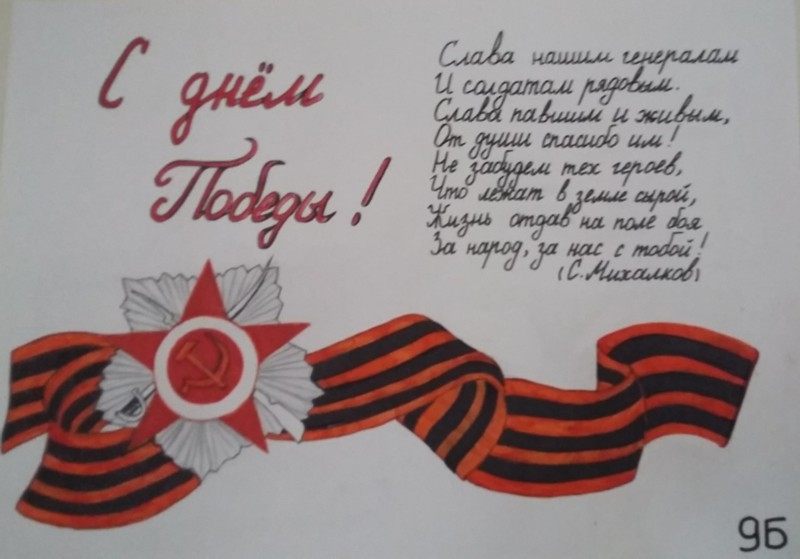 С днём
Победы!
Слава нашим генералам
И солдатам рядовым.
Слава павшим и живым,
От души спасибо им!
Не забудем тех героев,
Что лежат в земле сырой,
Жизнь отдав на поле боя
За народ, за нас с тобой!
(С. Михалков)
9Б